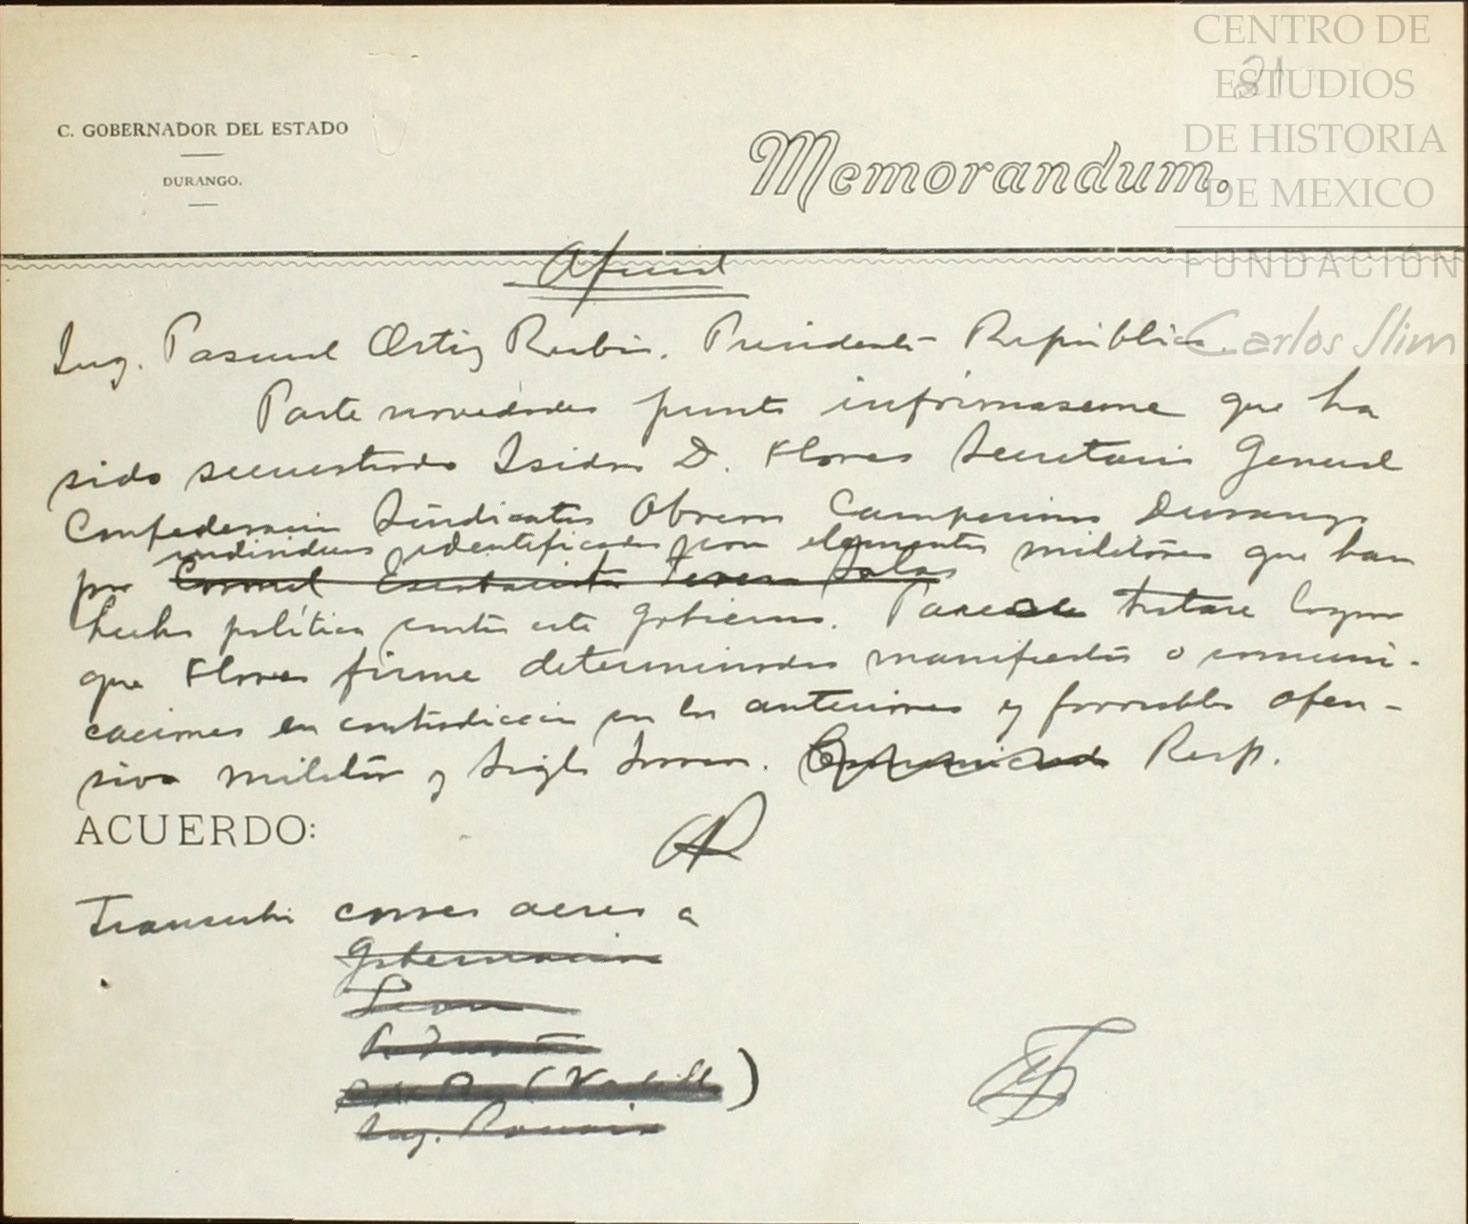 CENTRO DE
ESTUDIOS
DE HISTORIA
DE MEXICO
FUNDACIÓN
Carlos Slim
21
C. GOBERNADOR DEL ESTADO
DURANGO.
Memorandum.
Ing. Pascual Ortiz Rubio. Presidente República.
Parte novedades punto infórmaseme que ha
sido secuestrado Isidro D. Flores Secretario General
Confederación Sindicatos Obreros Campesinos Durango
individuos identificados con elementos militares que han
por Coronel
hecho política contra este gobierno. Parece tratase lograr
que Flores firme determinados manifiestos o comuni-
caciones en contradicción con los anteriores y favorables ofen-
siva militar y Resp.
ACUERDO:
Transcribir correo aereo a
Gobernación
Ing. Rouaix